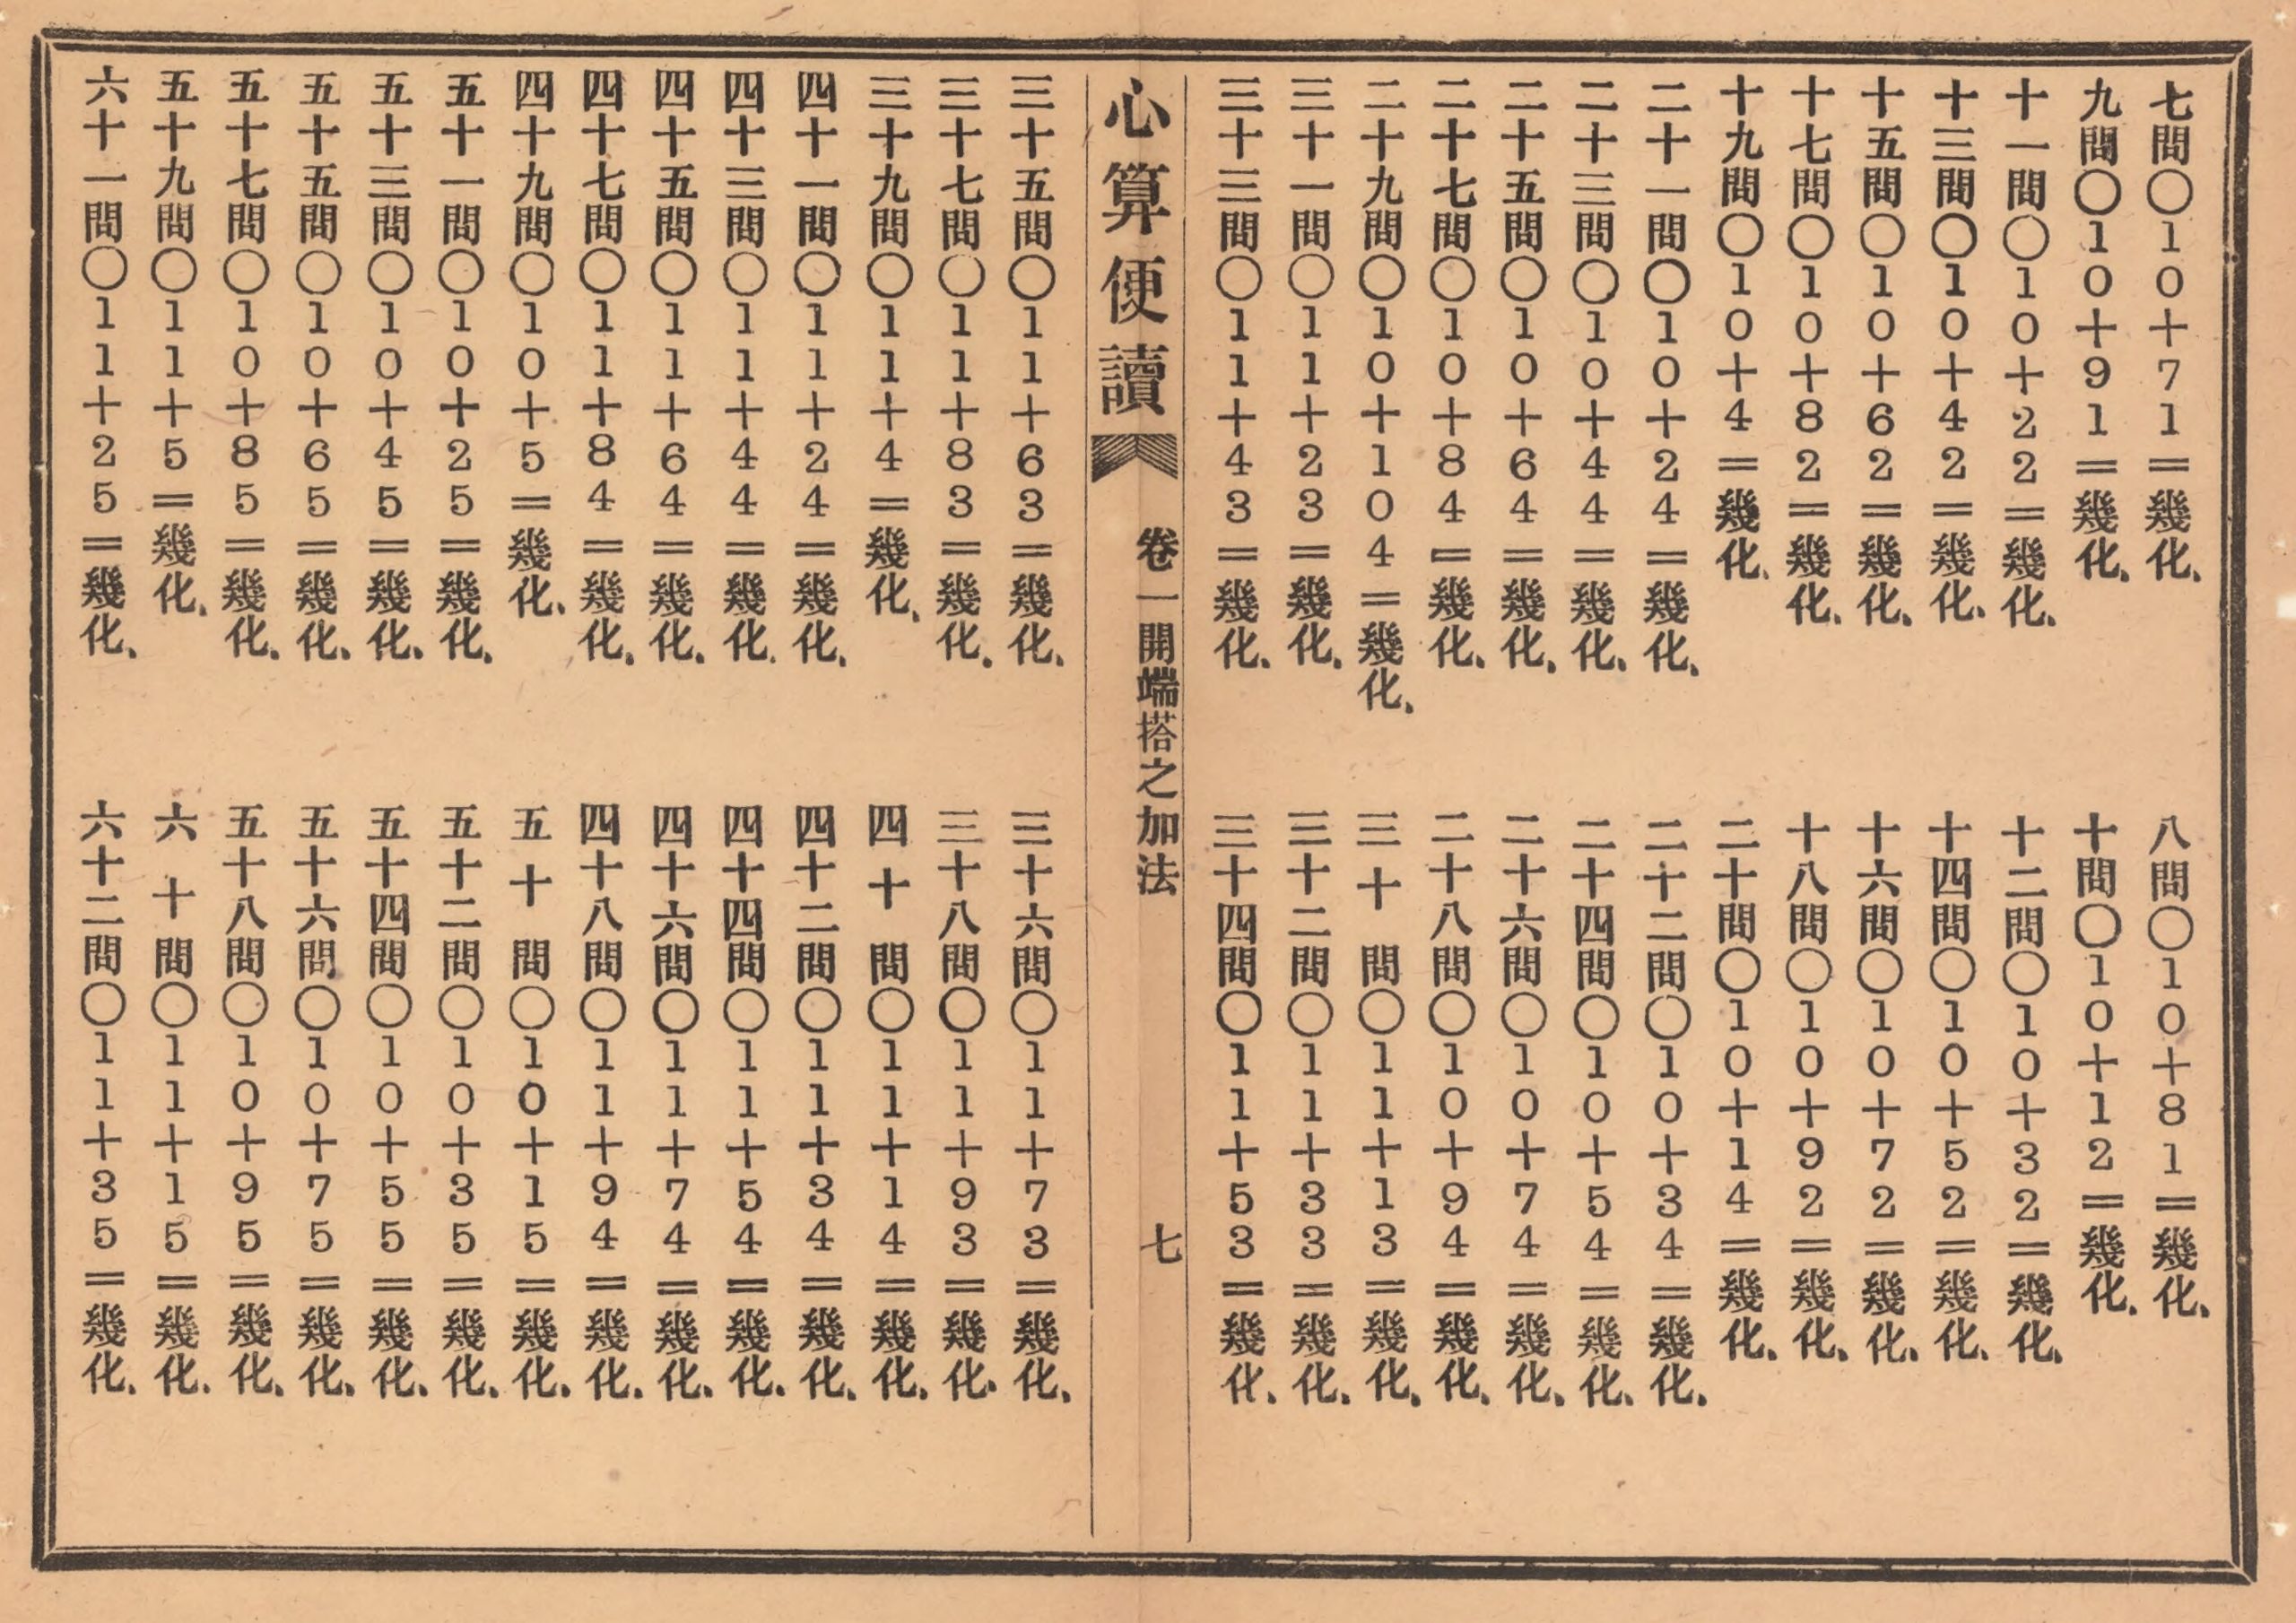 七問〇10+71=幾化、
八問〇10+81=幾化、
九問〇10+91=幾化、
十問〇10+12=幾化、
十一問〇10+22=幾化、
十二問〇10+32=幾化、
十三問〇10+42=幾化、
十四問〇10+52=幾化、
十五問〇10+62=幾化、
十六問〇10+72=幾化、
十七問〇10+82=幾化、
十八問〇10+92=幾化、
十九問〇10+4=幾化、
二十問〇10+14=幾化、
二十一問〇10+24=幾化、
二十二問〇10+34=幾化、
二十三問〇10+44=幾化、
二十四問〇10+54=幾化、
二十五問〇10+64=幾化、
二十六問〇10+74=幾化、
二十七問〇10+84=幾化、
二十八問〇10+94=幾化、
二十九問〇10+104=幾化、
三十問〇11+13=幾化、
三十一問〇11+23=幾化、
三十二問〇11+33=幾化、
三十三問〇11+43=幾化、
三十四問〇11+53=幾化、
心算便讀 卷一開端搭之加法 七
三十五問〇11+63=幾化、
三十六問〇11+73=幾化、
三十七問〇11+83=幾化、
三十八問〇11+93=幾化、
三十九問〇11+4=幾化、
四十問〇11+14=幾化、
四十一問〇11+24=幾化、
四十二問〇11+34=幾化、
四十三問〇11+44=幾化、
四十四問〇11+54=幾化、
四十五問〇11+64=幾化、
四十六問〇11+74=幾化、
四十七問〇11+84=幾化、
四十八問〇11+94=幾化、
四十九問〇10+5=幾化、
五十問〇10+15=幾化、
五十一問〇10+25=幾化、
五十二問〇10+35=幾化、
五十三問〇10+45=幾化、
五十四問〇10+55=幾化、
五十五問〇10+65=幾化、
五十六問〇10+75=幾化、
五十七問〇10+85=幾化、
五十八問〇10+95=幾化、
五十九問〇11+5=幾化、
六十問〇11+15=幾化、
六十一問〇11+25=幾化、
六十二問〇11+35=幾化、